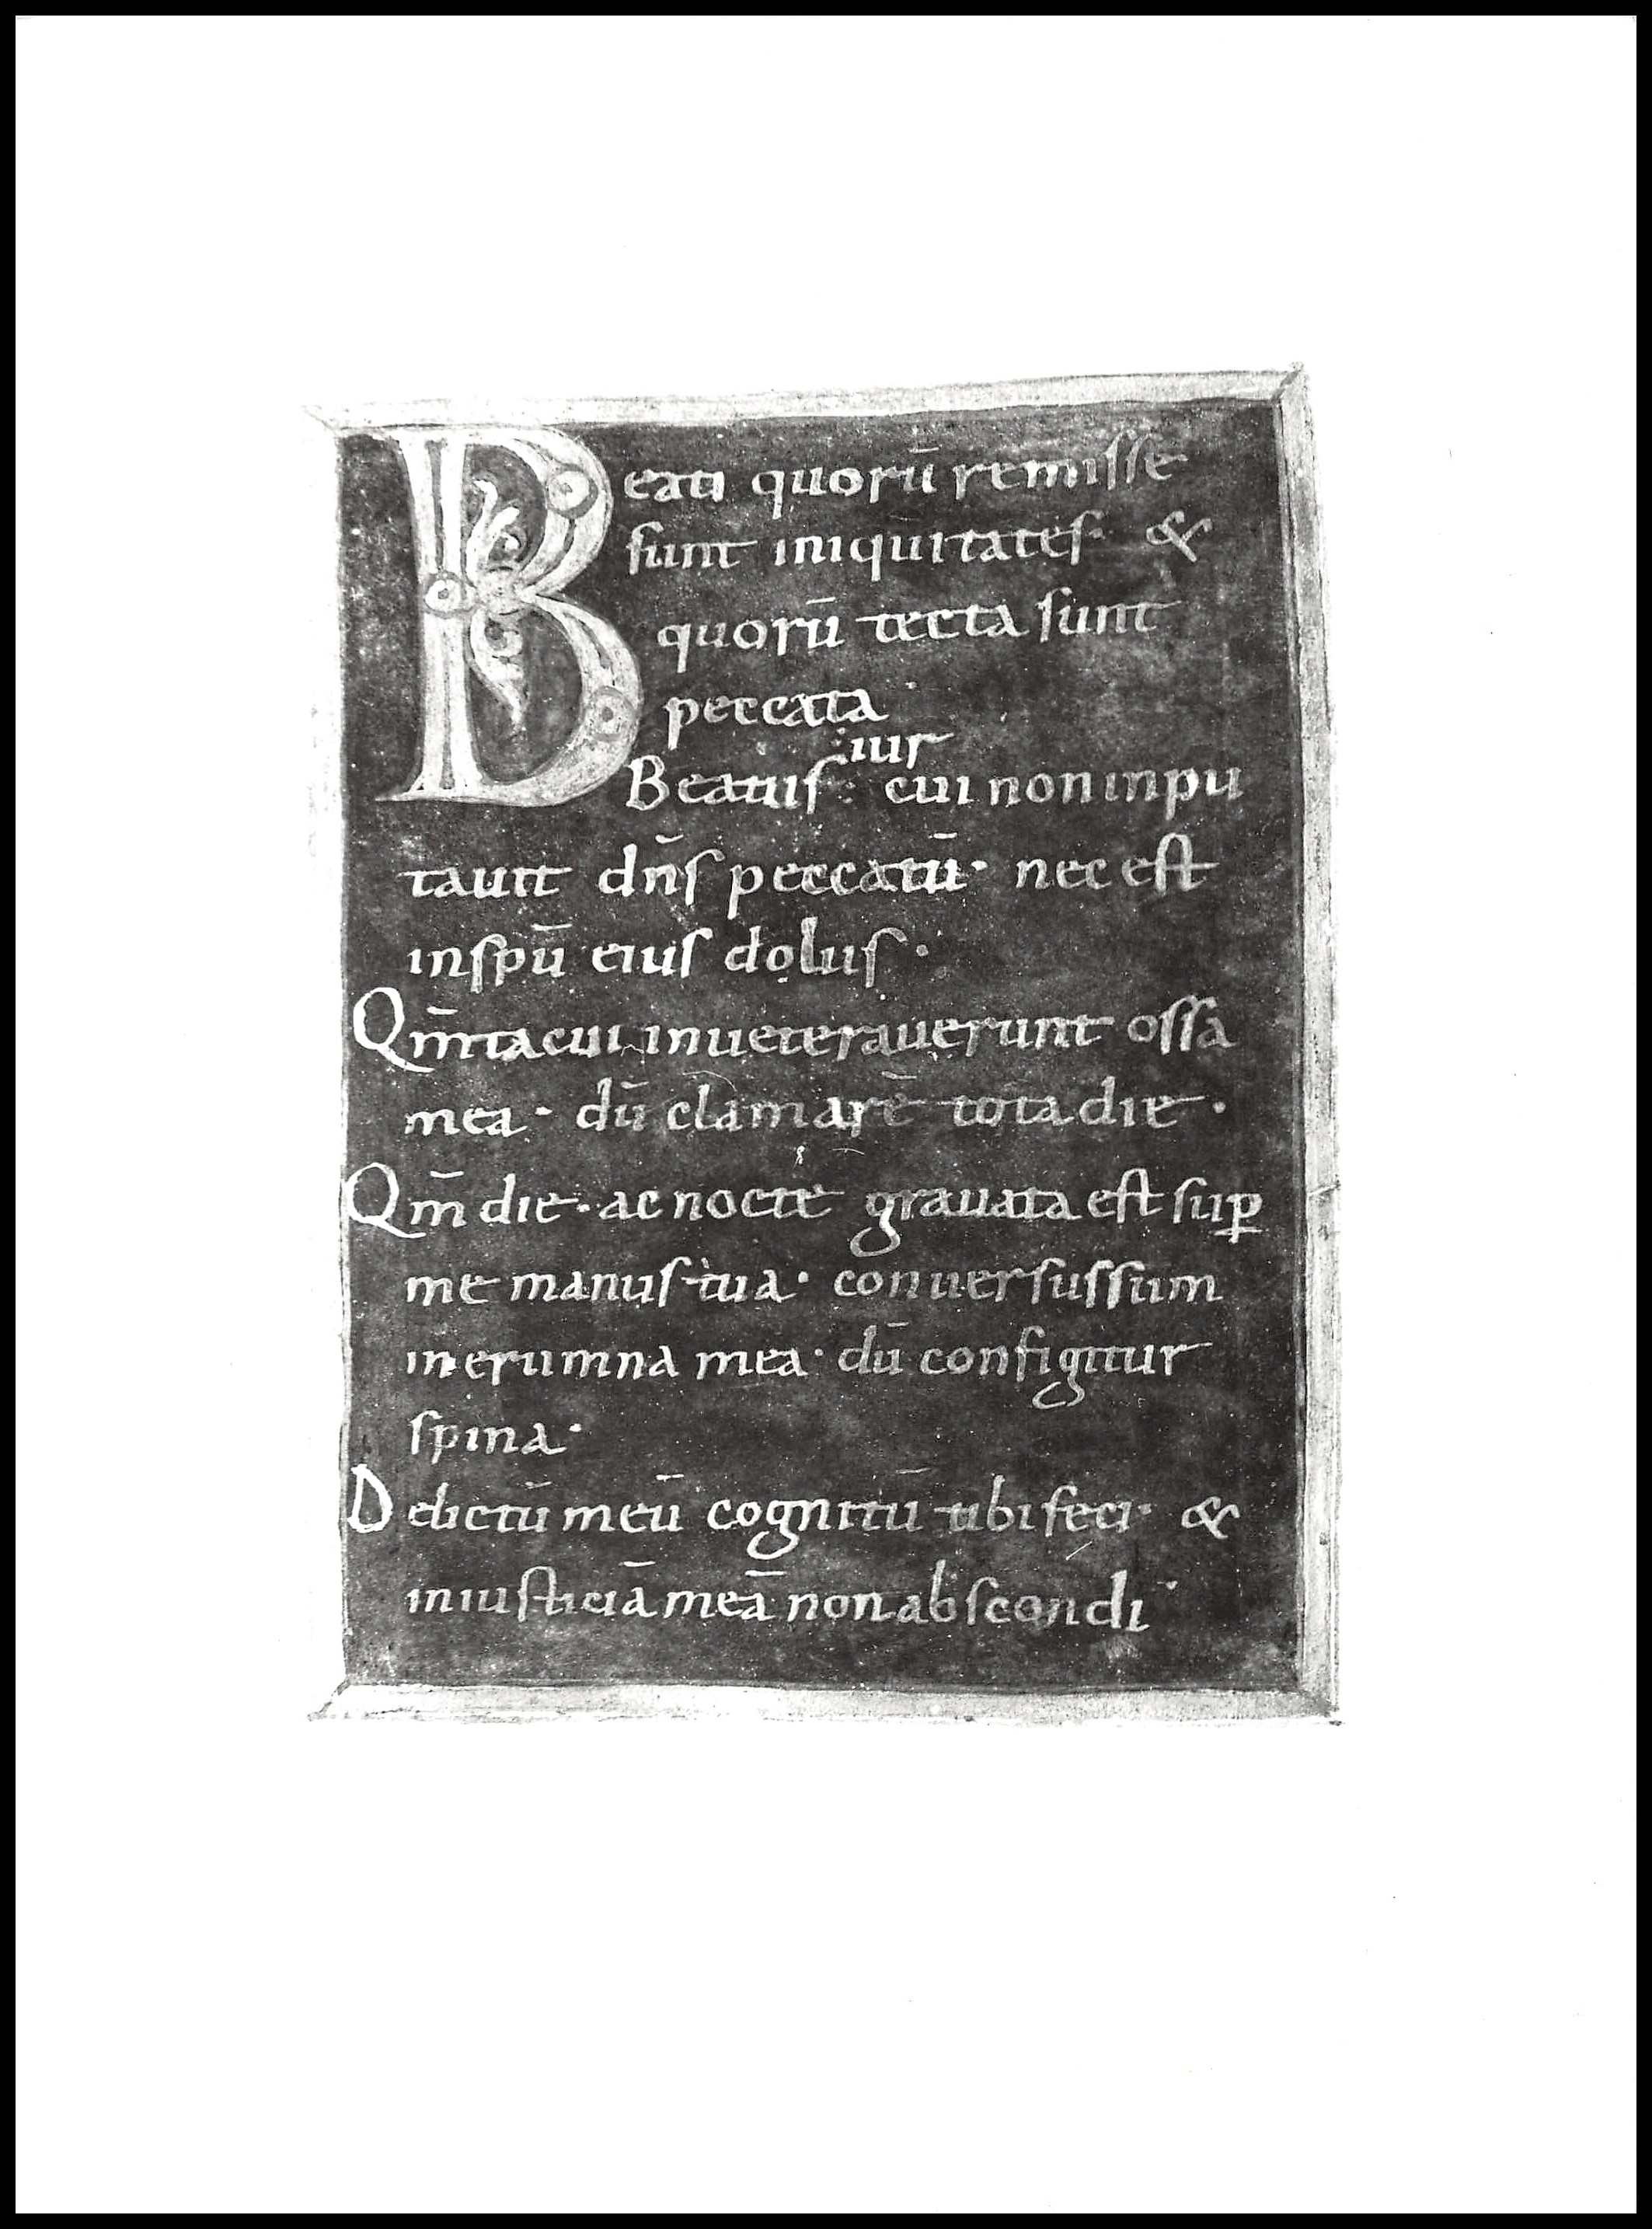 Beati quorū remisse
sunt iniquitates· &
quorū tecta sunt
peccata·
uir
Beatus : cui non inpu
tauit dn̄s peccatū· nec est
in spū eius dolus·
Qm̄ tacui inueterauerunt ossa
mea· dū clamarē tota die·
Qm̄ die· ac nocte grauata est suꝑ
me manus tua· conuersus sum
in erumna mea· dū configitur
spina·
Delictū meū cognitū tibi feci· &
iniusticiā meā non abscondi·